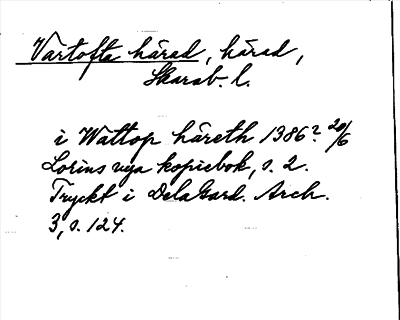 Vartofta härad, härad,
Skarab. l.
i Wattop häreth 1386? 20/6
Lorins nya kopiebok, s. 2.
Tryckt i DelaGard. Arch.
3, s. 124.